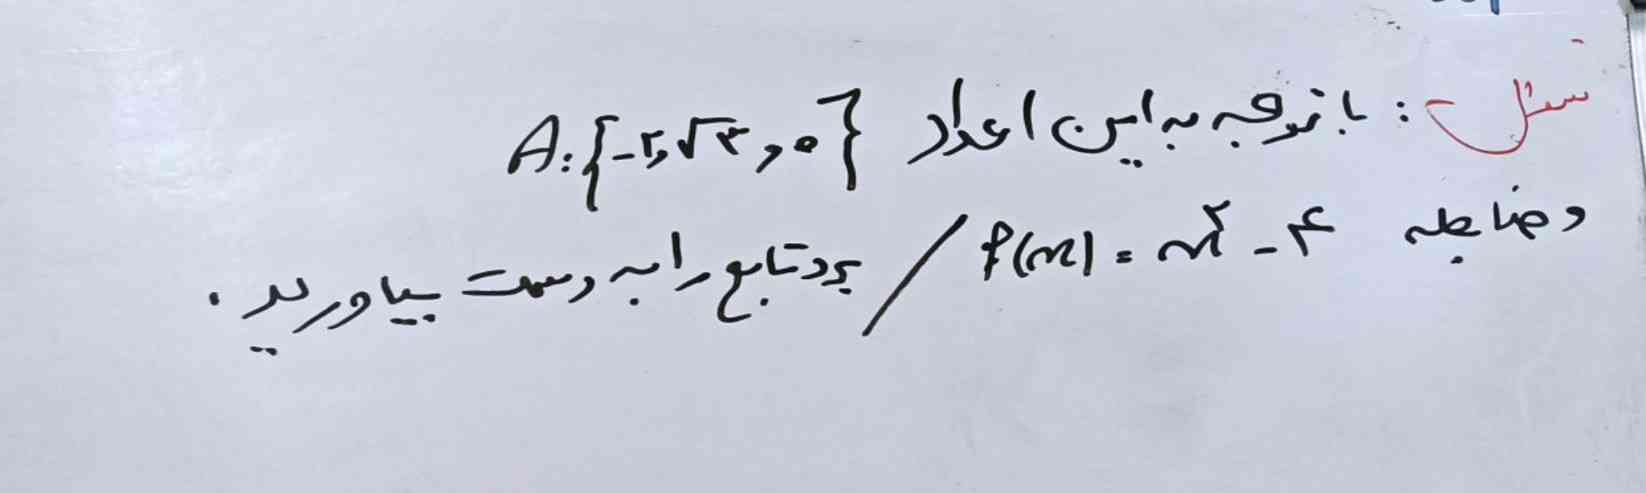 سئل : با توجه به این اعداد A:{-۲,√۳,۰}
و ضابطه f(x) = x² - ۴ / برد تابع را به دست بیاورید.